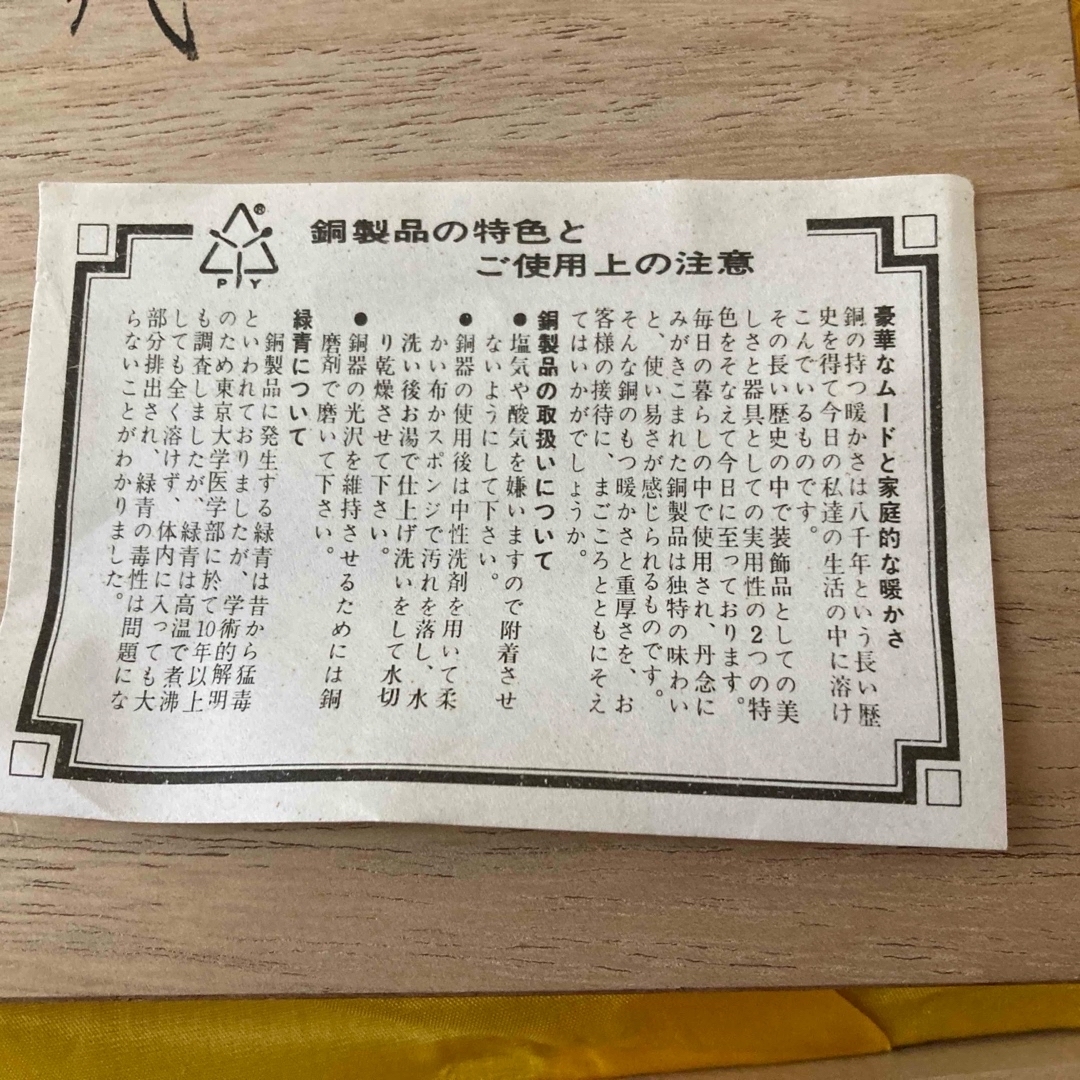 銅製品の特色と
ご使用上の注意
® 
PY
豪華なムードと家庭的な暖かさ
銅の持つ暖かさは八千年という長い歴
史を得て今日の私達の生活の中に溶け
こんでいるものです。
その長い歴史の中で装飾品としての美
しさと器具としての実用性の2つの特
色をそなえて今日に至っております。
毎日の暮らしの中で使用され、丹念に
みがきこまれた銅製品は独特の味わい
と、使い易さが感じられるものです。
そんな銅のもつ暖かさと重厚さを、お
客様の接待に、まごころとともにそえ
てはいかがでしょうか。
銅製品の取扱いについて
●塩気や酸気を嫌いますので附着させ
ないようにして下さい。
●銅器の使用後は中性洗剤を用いて柔
かい布かスポンジで汚れを落し、水
洗い後お湯で仕上げ洗いをして水切
り乾燥させて下さい。
●銅器の光沢を維持させるためには銅
磨剤で磨いて下さい。
緑青について
銅製品に発生する緑青は昔から猛毒
といわれておりましたが、学術的解明
のため東京大学医学部に於て10年以上
も調査しましたが、緑青は高温で煮沸
しても全く溶けず、体内に入っても大
部分排出され、緑青の毒性は問題にな
らないことがわかりました。